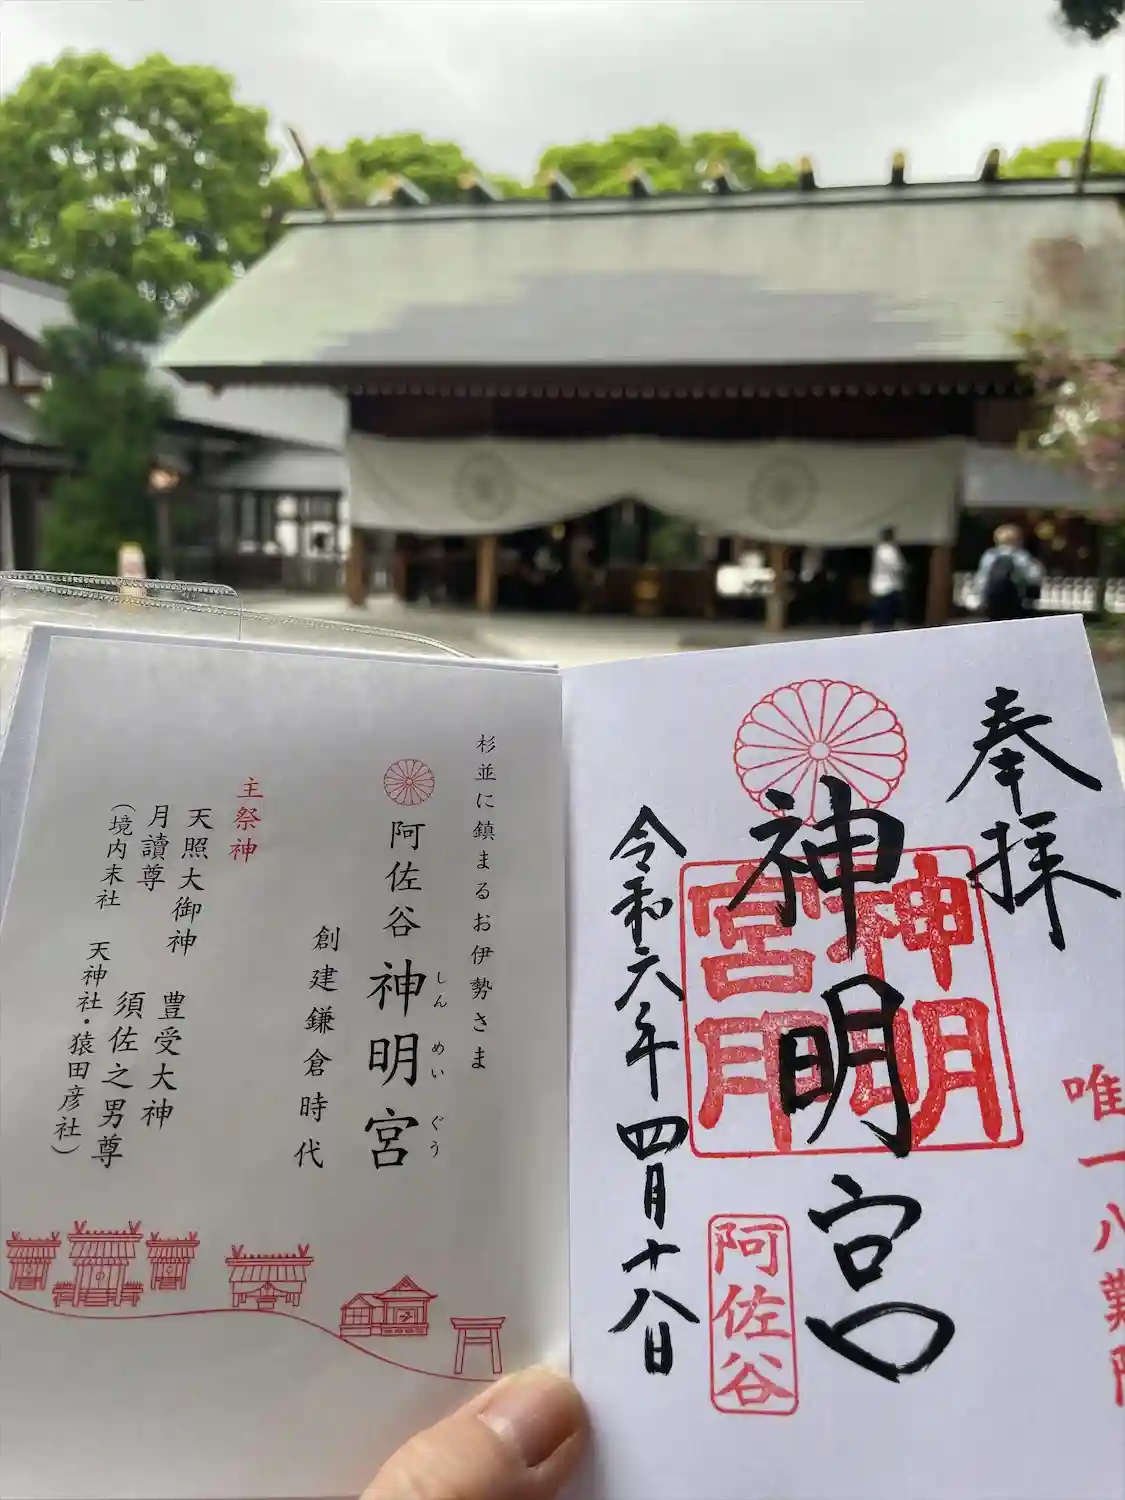 杉並に鎮まるお伊勢さま
阿佐谷神明宮
しんめいぐう
創建鎌倉時代
主祭神
天照大御神 豊受大神
月讀尊 須佐之男尊
(境内末社 天神社・猿田彦社)
唯一八難
奉拝
神明宮
神明
宮印
阿佐谷
令和六年四月十八日